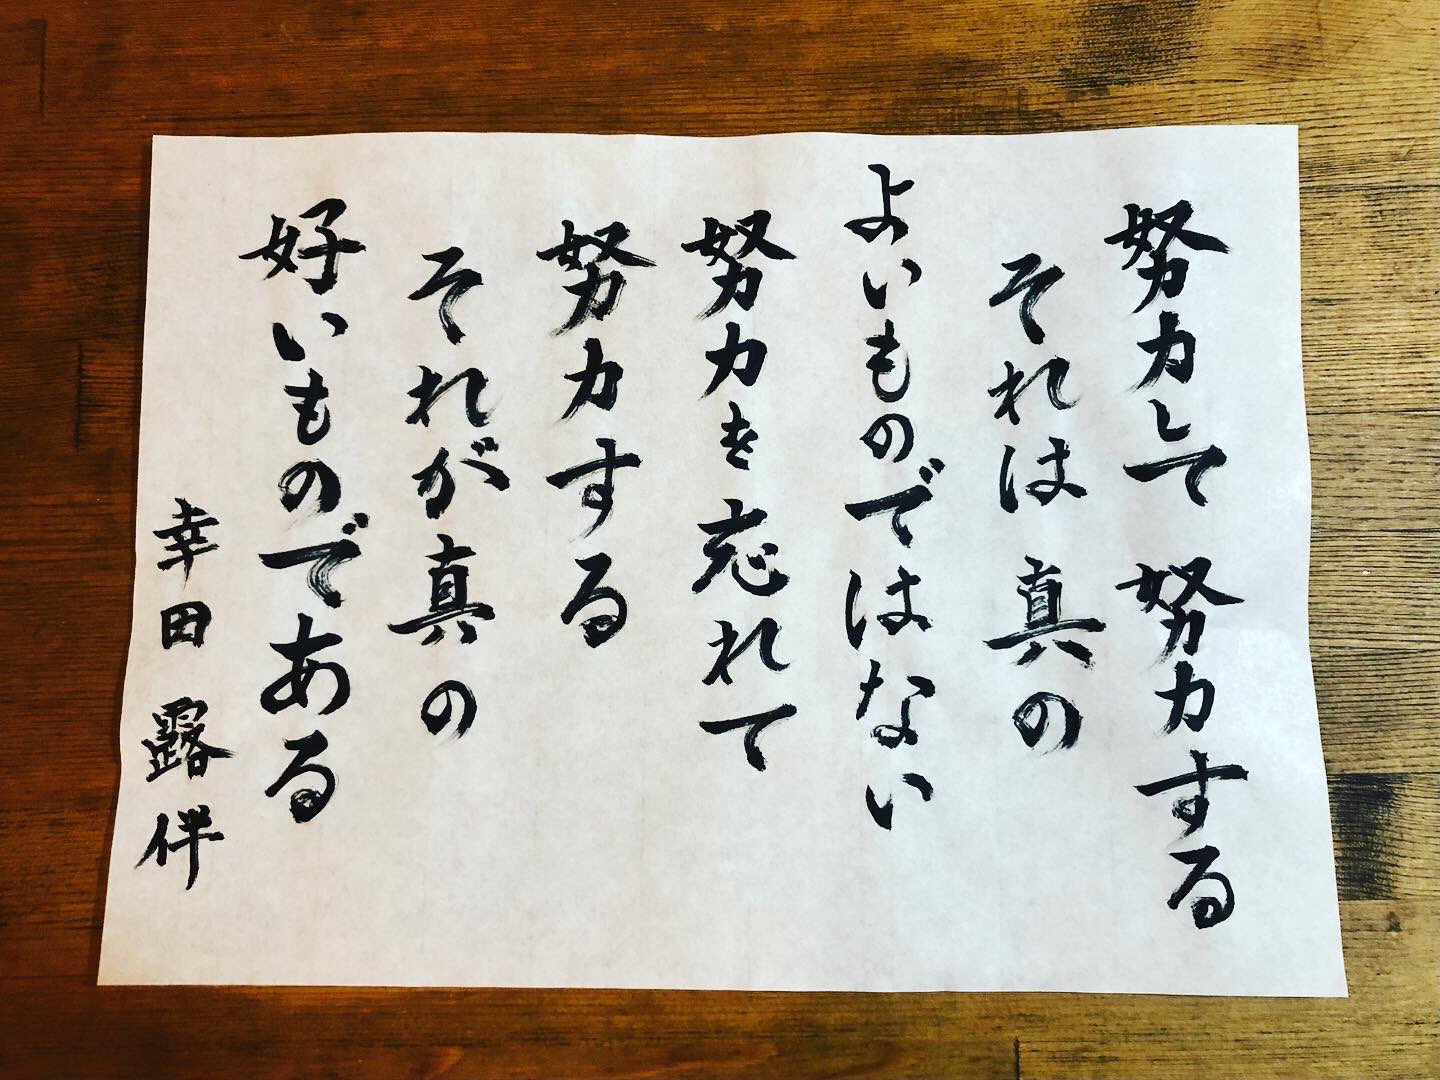 努力して努力する
それは真の
よいものではない
努力を忘れて
努力する
それが真の
好いものである
幸田露伴